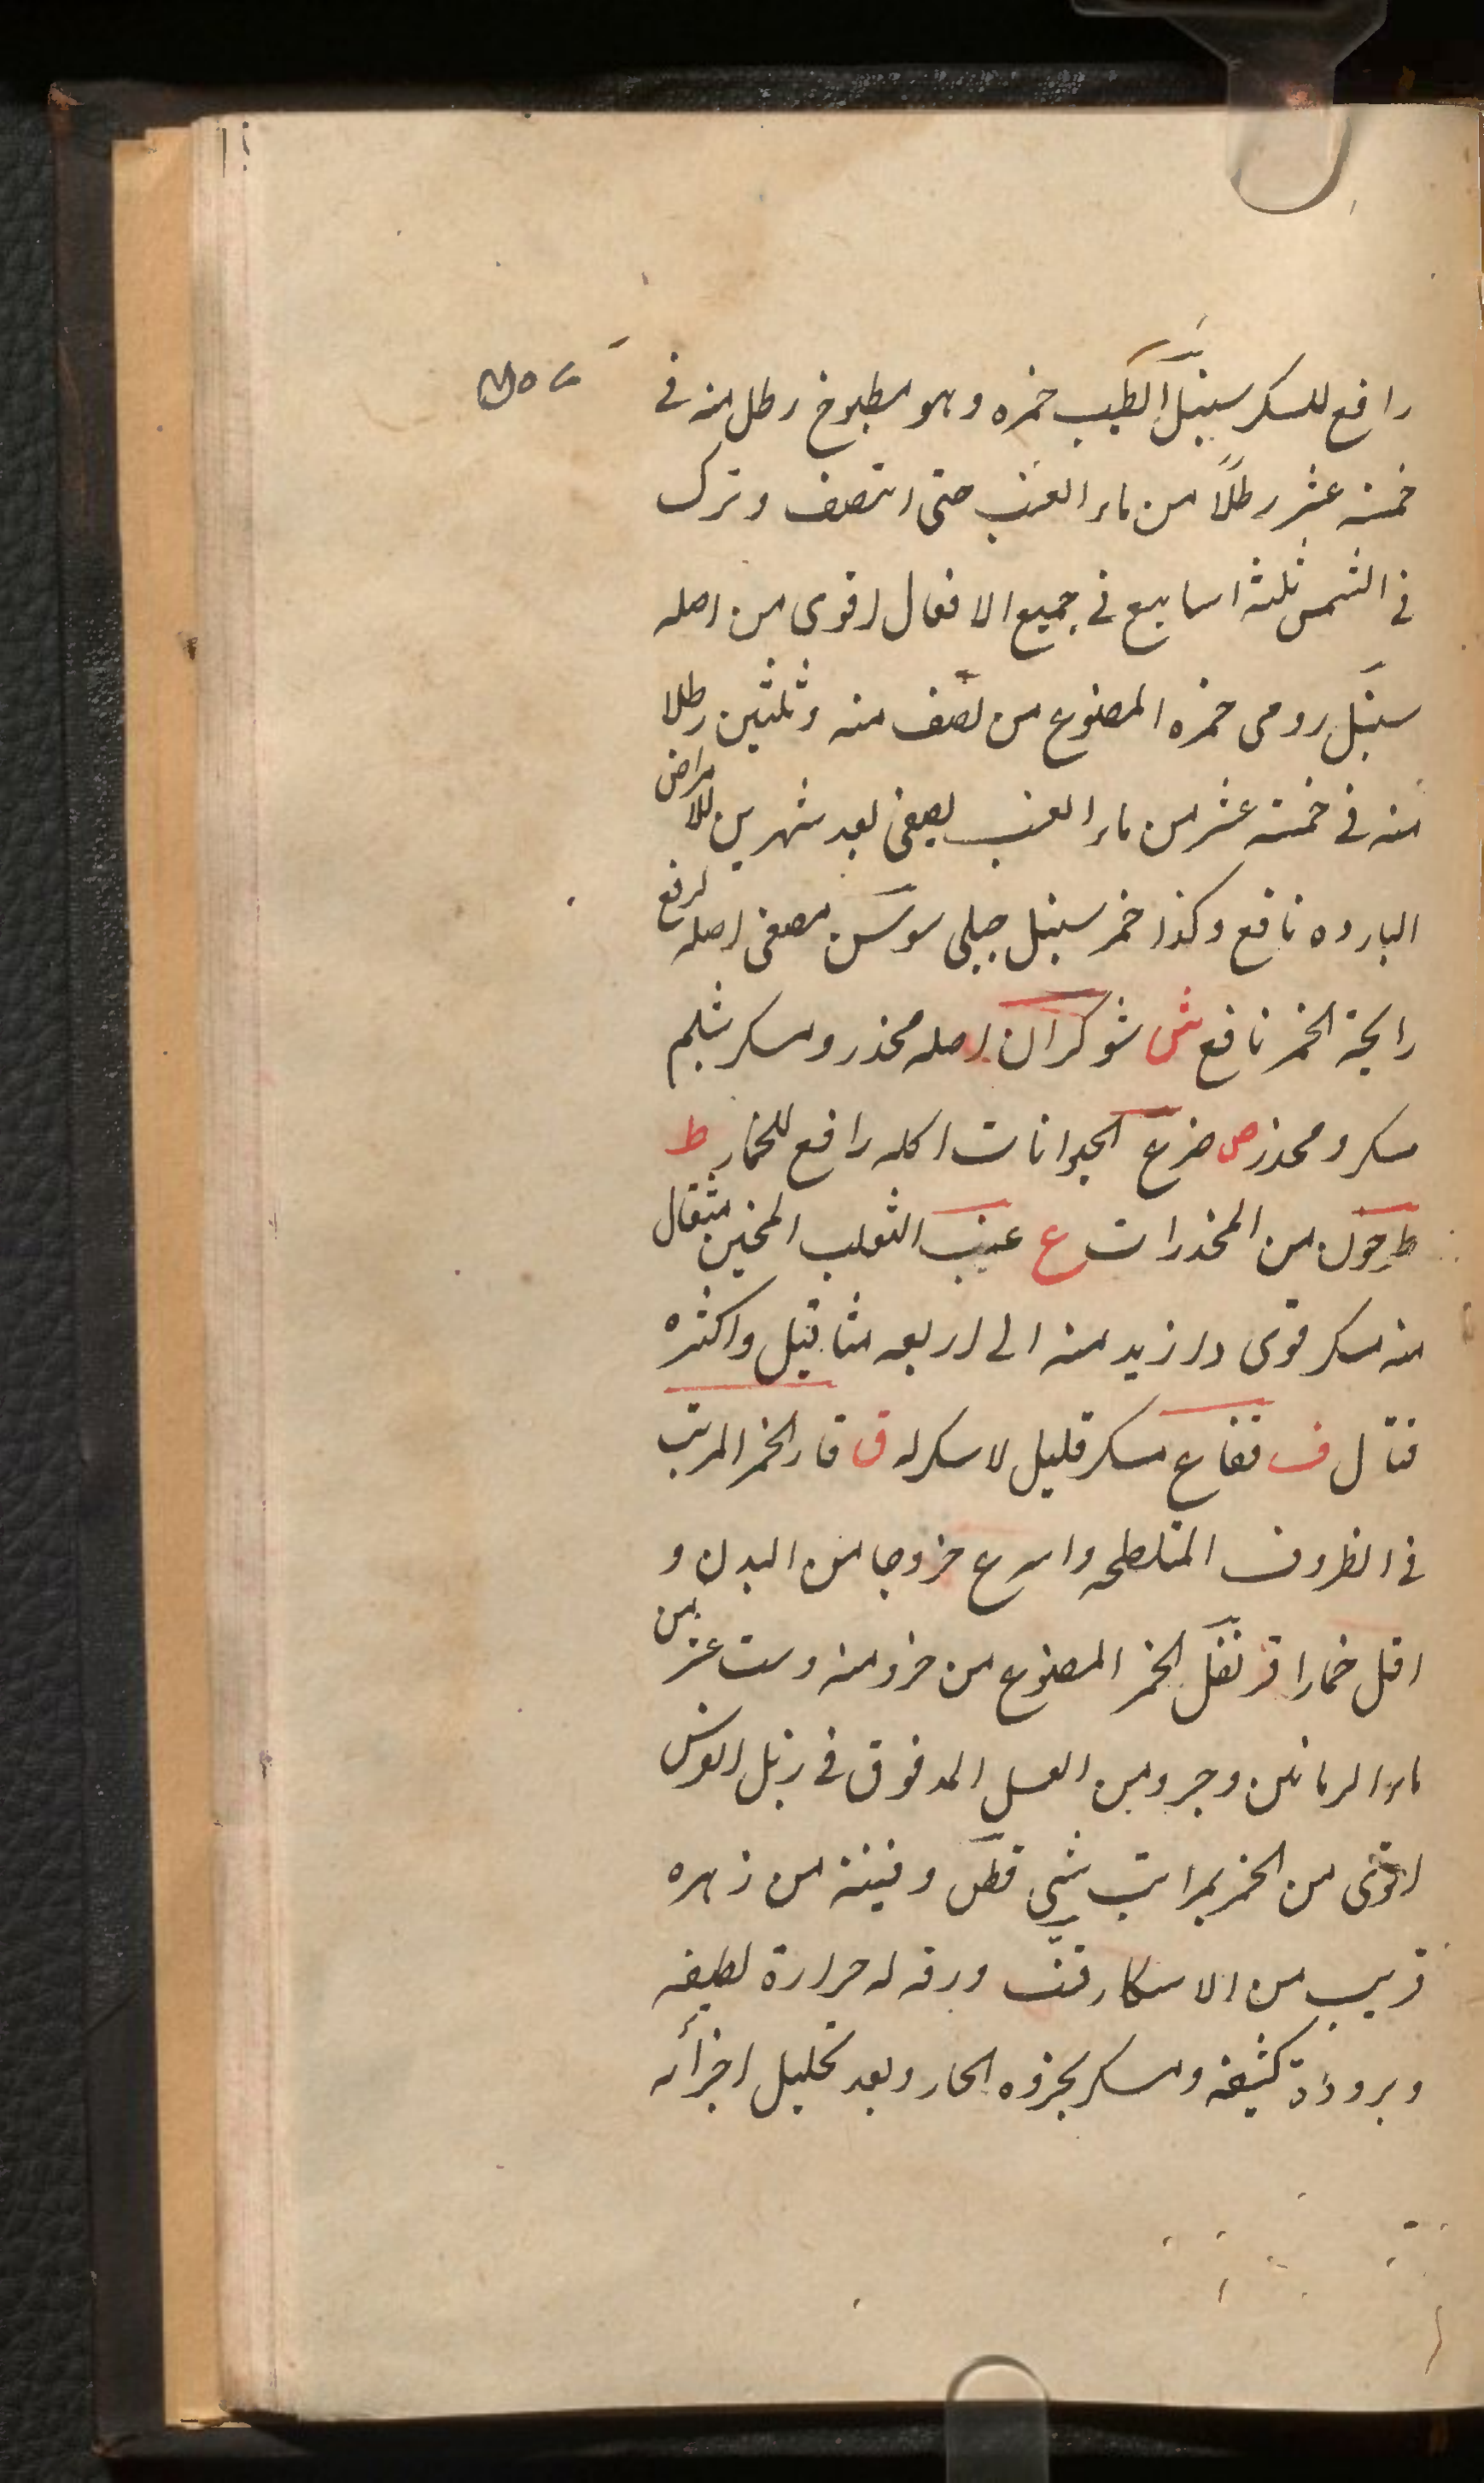 رافع للسكر سنبل الطيب خمره وهو مطبوخ رطل منه فى
خمسة عشر رطلاً من ماء العنب حتى انتصف وترك
فى الشمس ثلثة اسابيع فى جميع الافعال اقوى من اصله
سنبل رومى خمره المصنوع من نصف منه وثلثين رطلا
منه فى خمسة عشر من ماء العنب يصفى بعد شهرين للامراض
البارده نافع وكذا خمر سنبل جبلى سوسن مصفى اصله لرفع
رايحة الخمر نافع ش شوكران اصله مخدر ومسكر شيلم
مسكر ومخدر ص ضرع الحيوانات اكله رافع للخمار ط
من المخدرات ع عنب الثعلب المخبن مثقال
منه مسكر قوى وازيد منه الى اربعه مثاقيل واكثره
قتال ف فقاع مسكر قليل لا سكر له ق قار الخمر المرتب
فى الظروف المتلطحه واسرع خروجا من البدن و
اقل خمارا قرنفل الخمر المصنوع من جزو منه وست عشر من
ماء الرمانين وجزو من العسل المدفوق فى زبل الفرس
اقوى من الخمر بمراتب شتى قطن وقيته من زهره
قريب من الاسكار قنب ورقه له حرارة لطيفه
وبرودة كثيفه ومسكر بجزوه الحار وبعد تحليل اجزائه